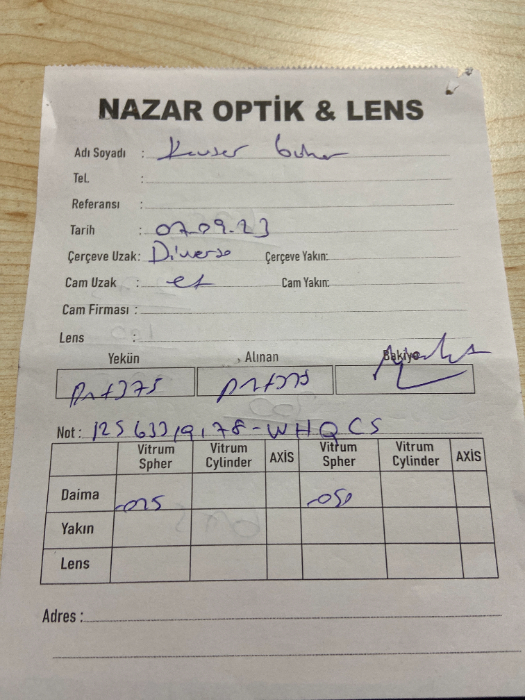 NAZAR OPTİK & LENS
Adı Soyadı : Kevser
Tel. :
Referansı :
Tarih : 07.09.23
Çerçeve Uzak: Diverso Çerçeve Yakın:
Cam Uzak : Cam Yakın:
Cam Firması :
Lens :
Yekün Alınan Bakiye
Not :
Vitrum Spher Vitrum Cylinder AXİS Vitrum Spher Vitrum Cylinder AXİS
Daima -025 -050
Yakın
Lens
Adres :